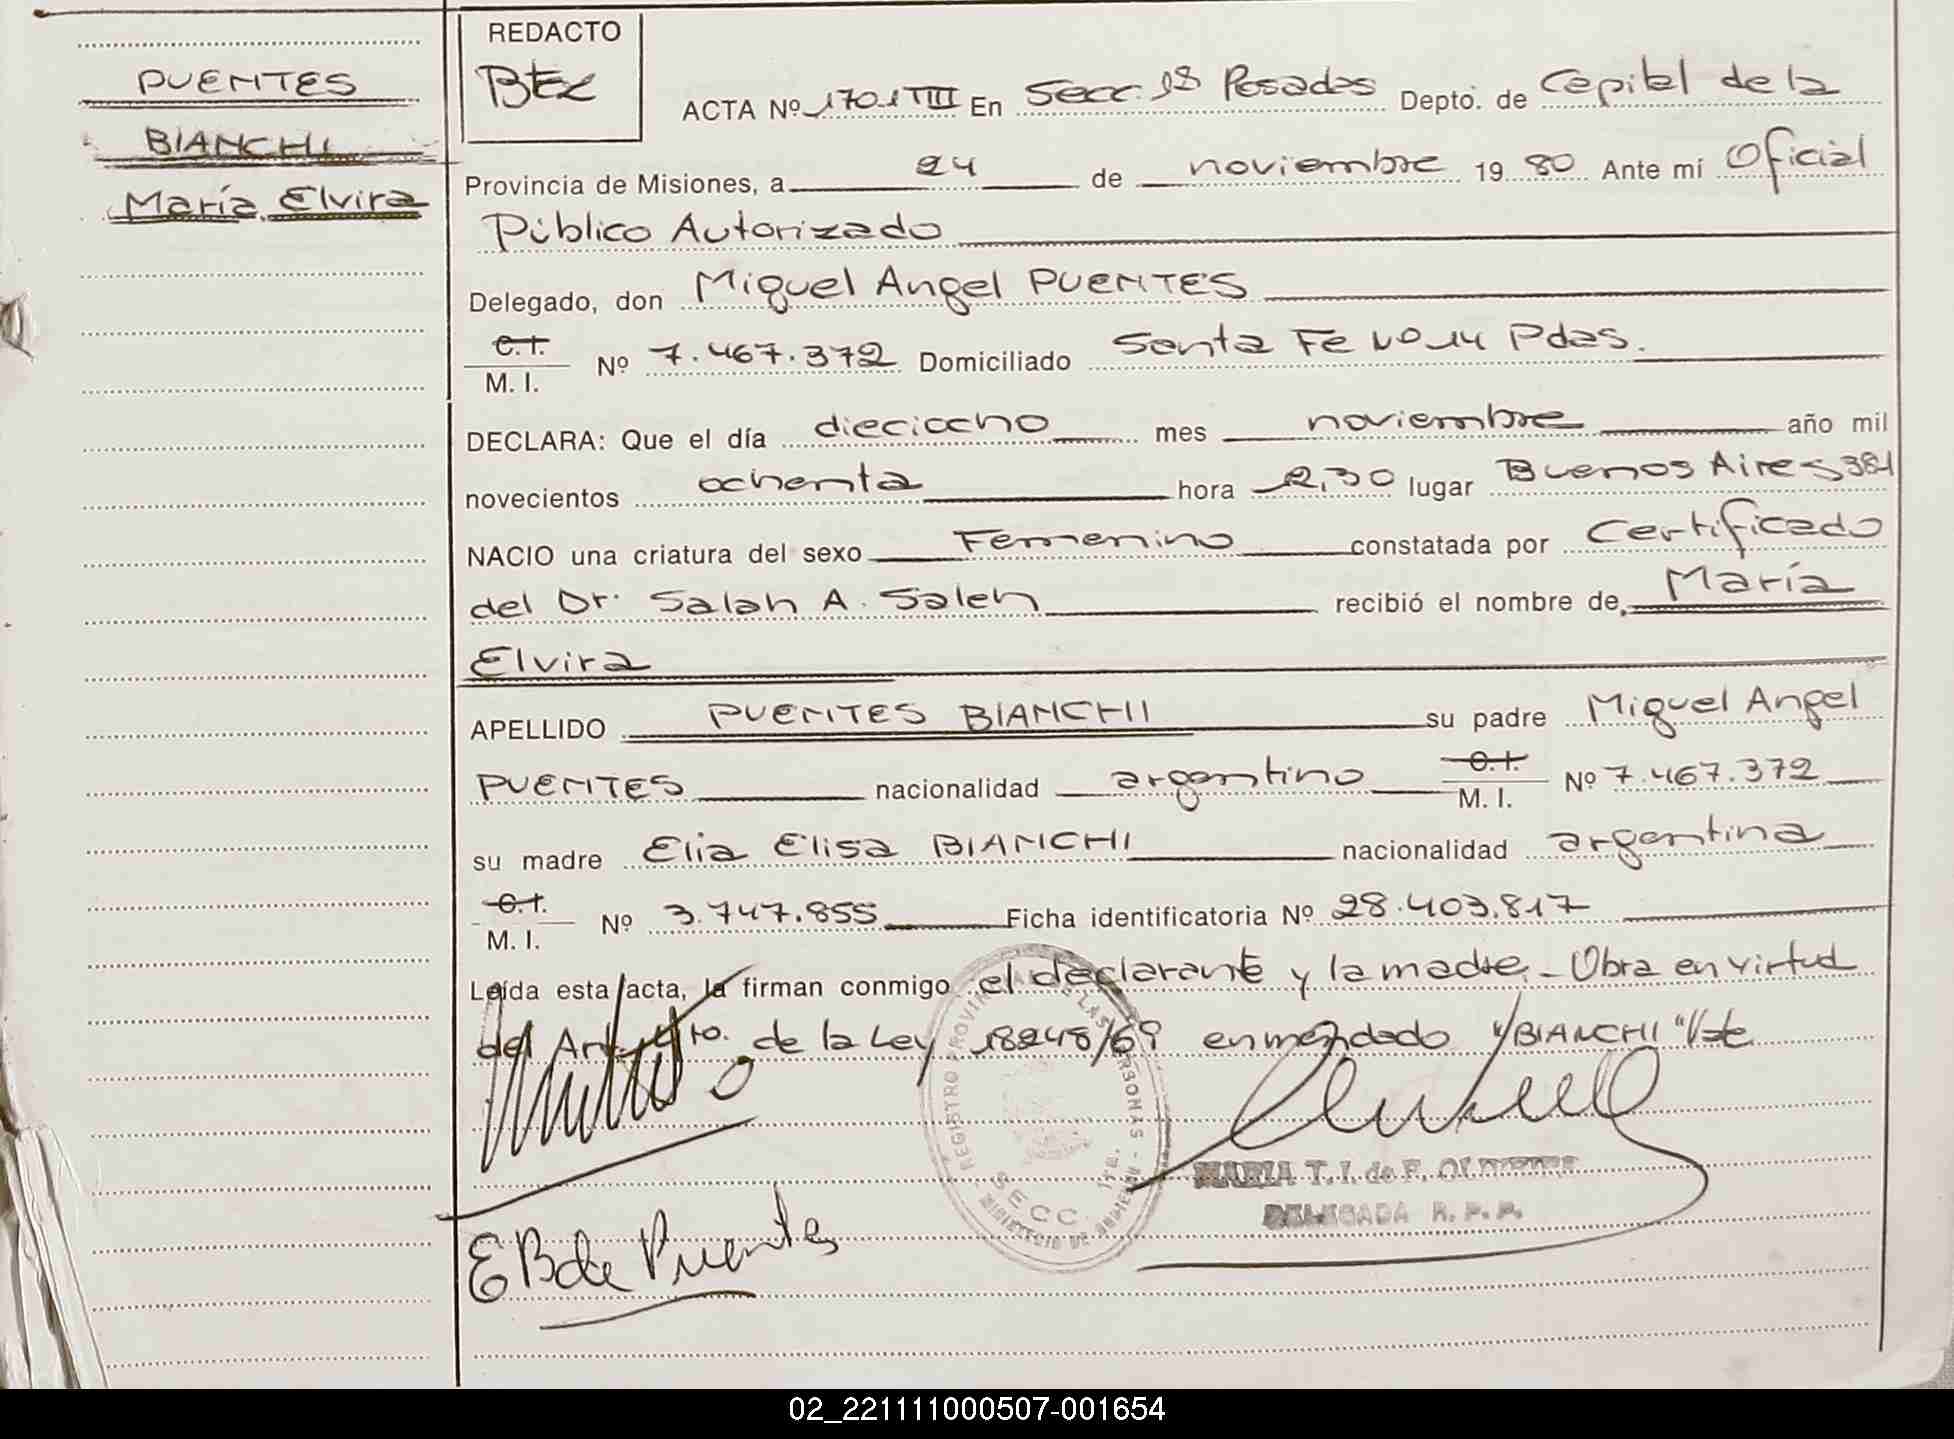 PUENTES
BIANCHI
María Elvira
REDACTO
ACTA Nº 1701 TIII En Secc. 1ª Posadas Depto. de Capital de la
Provincia de Misiones, a 24 de noviembre 1980 Ante mí Oficial
Público Autorizado
Delegado, don Miguel Angel PUENTES
C.I.
M. I. Nº 7.467.372 Domiciliado Santa Fe Nº 14 Pdas.
DECLARA: Que el día dieciocho mes noviembre año mil
novecientos ochenta hora 2,30 lugar Buenos Aires 381
NACIO una criatura del sexo Femenino constatada por Certificado
del Dr. Salah A. Saleh recibió el nombre de María
Elvira
APELLIDO PUENTES BIANCHI su padre Miguel Angel
PUENTES nacionalidad argentino C.I. M. I. Nº 7.467.372
su madre Elia Elisa BIANCHI nacionalidad argentina
C.I.
M. I. Nº 3.747.855 Ficha identificatoria Nº 28.403.817
Leída esta acta, la firman conmigo el declarante y la madre. - Obra en virtud
del Art. 4to. de la Ley 18248/69 enmendado "BIANCHI" Vale
REGISTRO PROVINCIAL DE LAS PERSONAS - MINISTERIO DE GOBIERNO
SECC. 1ra.
MARIA T. I. de F.
DELEGADA R. P. P.
E B de Puentes
02_221111000507-001654